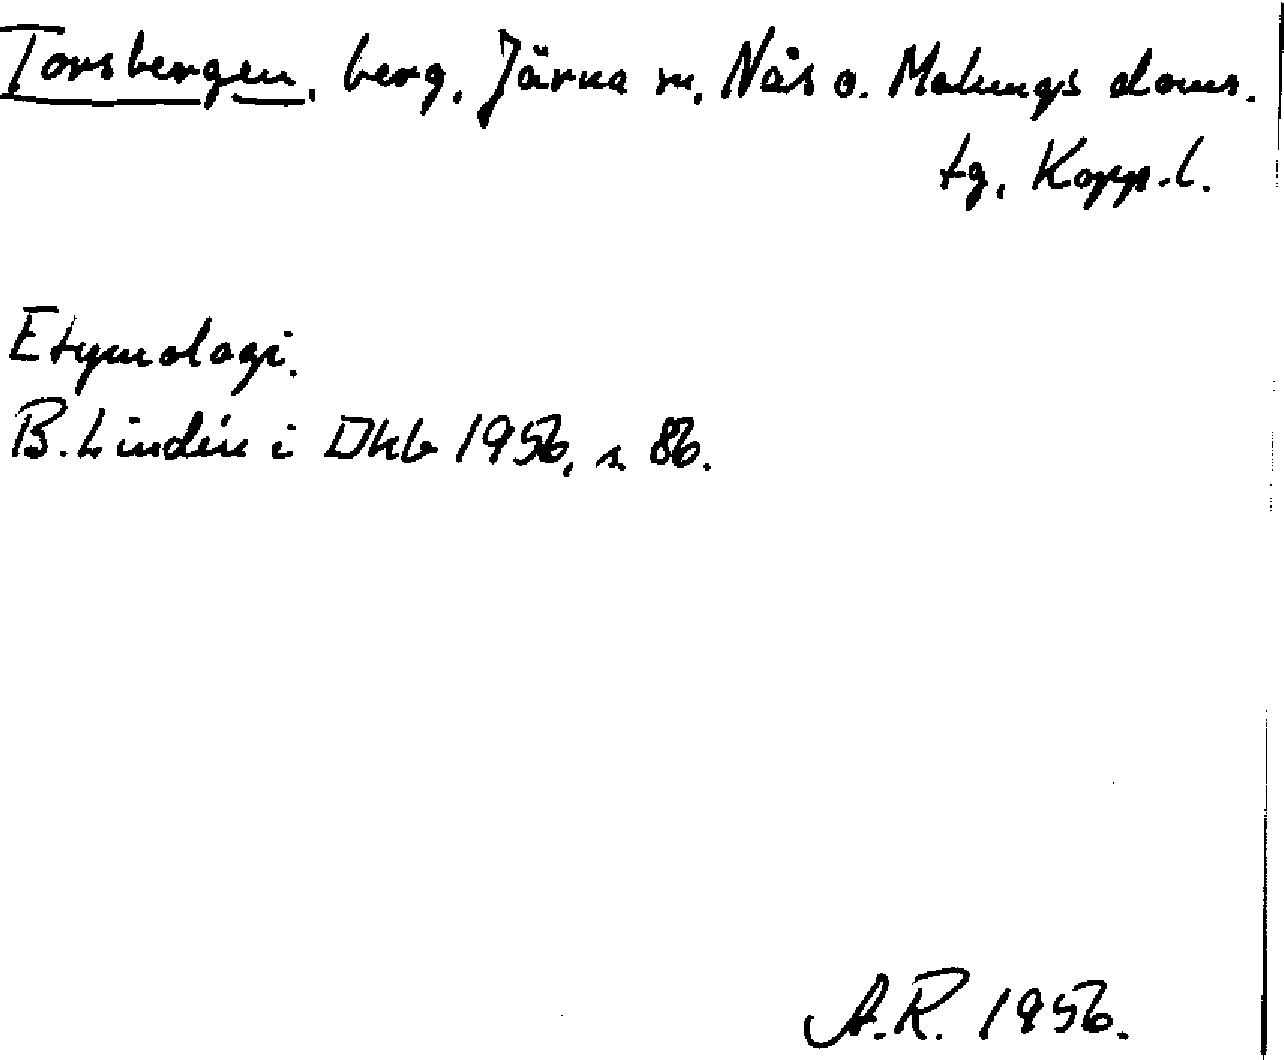 Torsbergen, berg, Järna sn, Nås o. Malungs doms.
tg, Kopp.l.
Etymologi.
B. Lindén i DHb 1956, s. 86.
A.R. 1956.